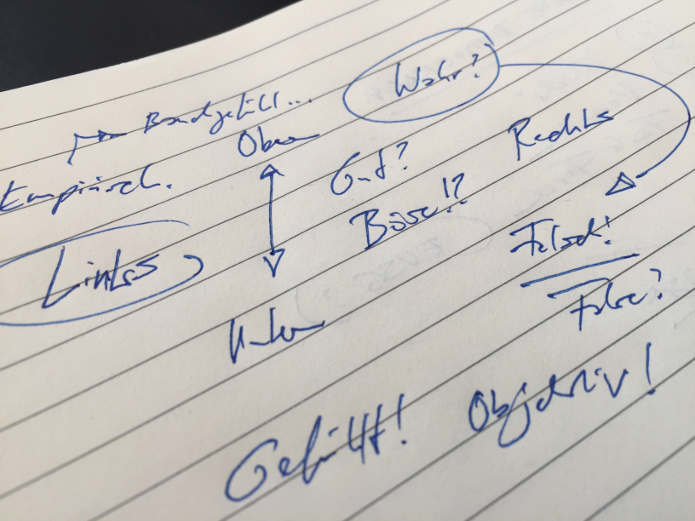 Wahr?
Bauchgefühl...
Oben
Rechts
Gut?
Empirisch.
Böse!?
Links
Falsch!
Unten
False?
Gefühlt!
Objektiv!